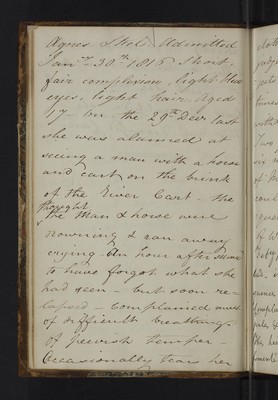 Agnes Admitted
Jany 30th 1816 Short
fair complexion, light blue
eyes, light hair Aged
17 On the 29th Decr last
she was alarmed at
seeing a man with a horse
and cart on the brink
of the River Cart. She
thought
the Man & horse were
drowning & ran away
crying. An hour after
to have forgot what she
had seen - but soon re-
lapsed - Complained much
of difficult breathing
of peevish temper -
Occasionally tears her